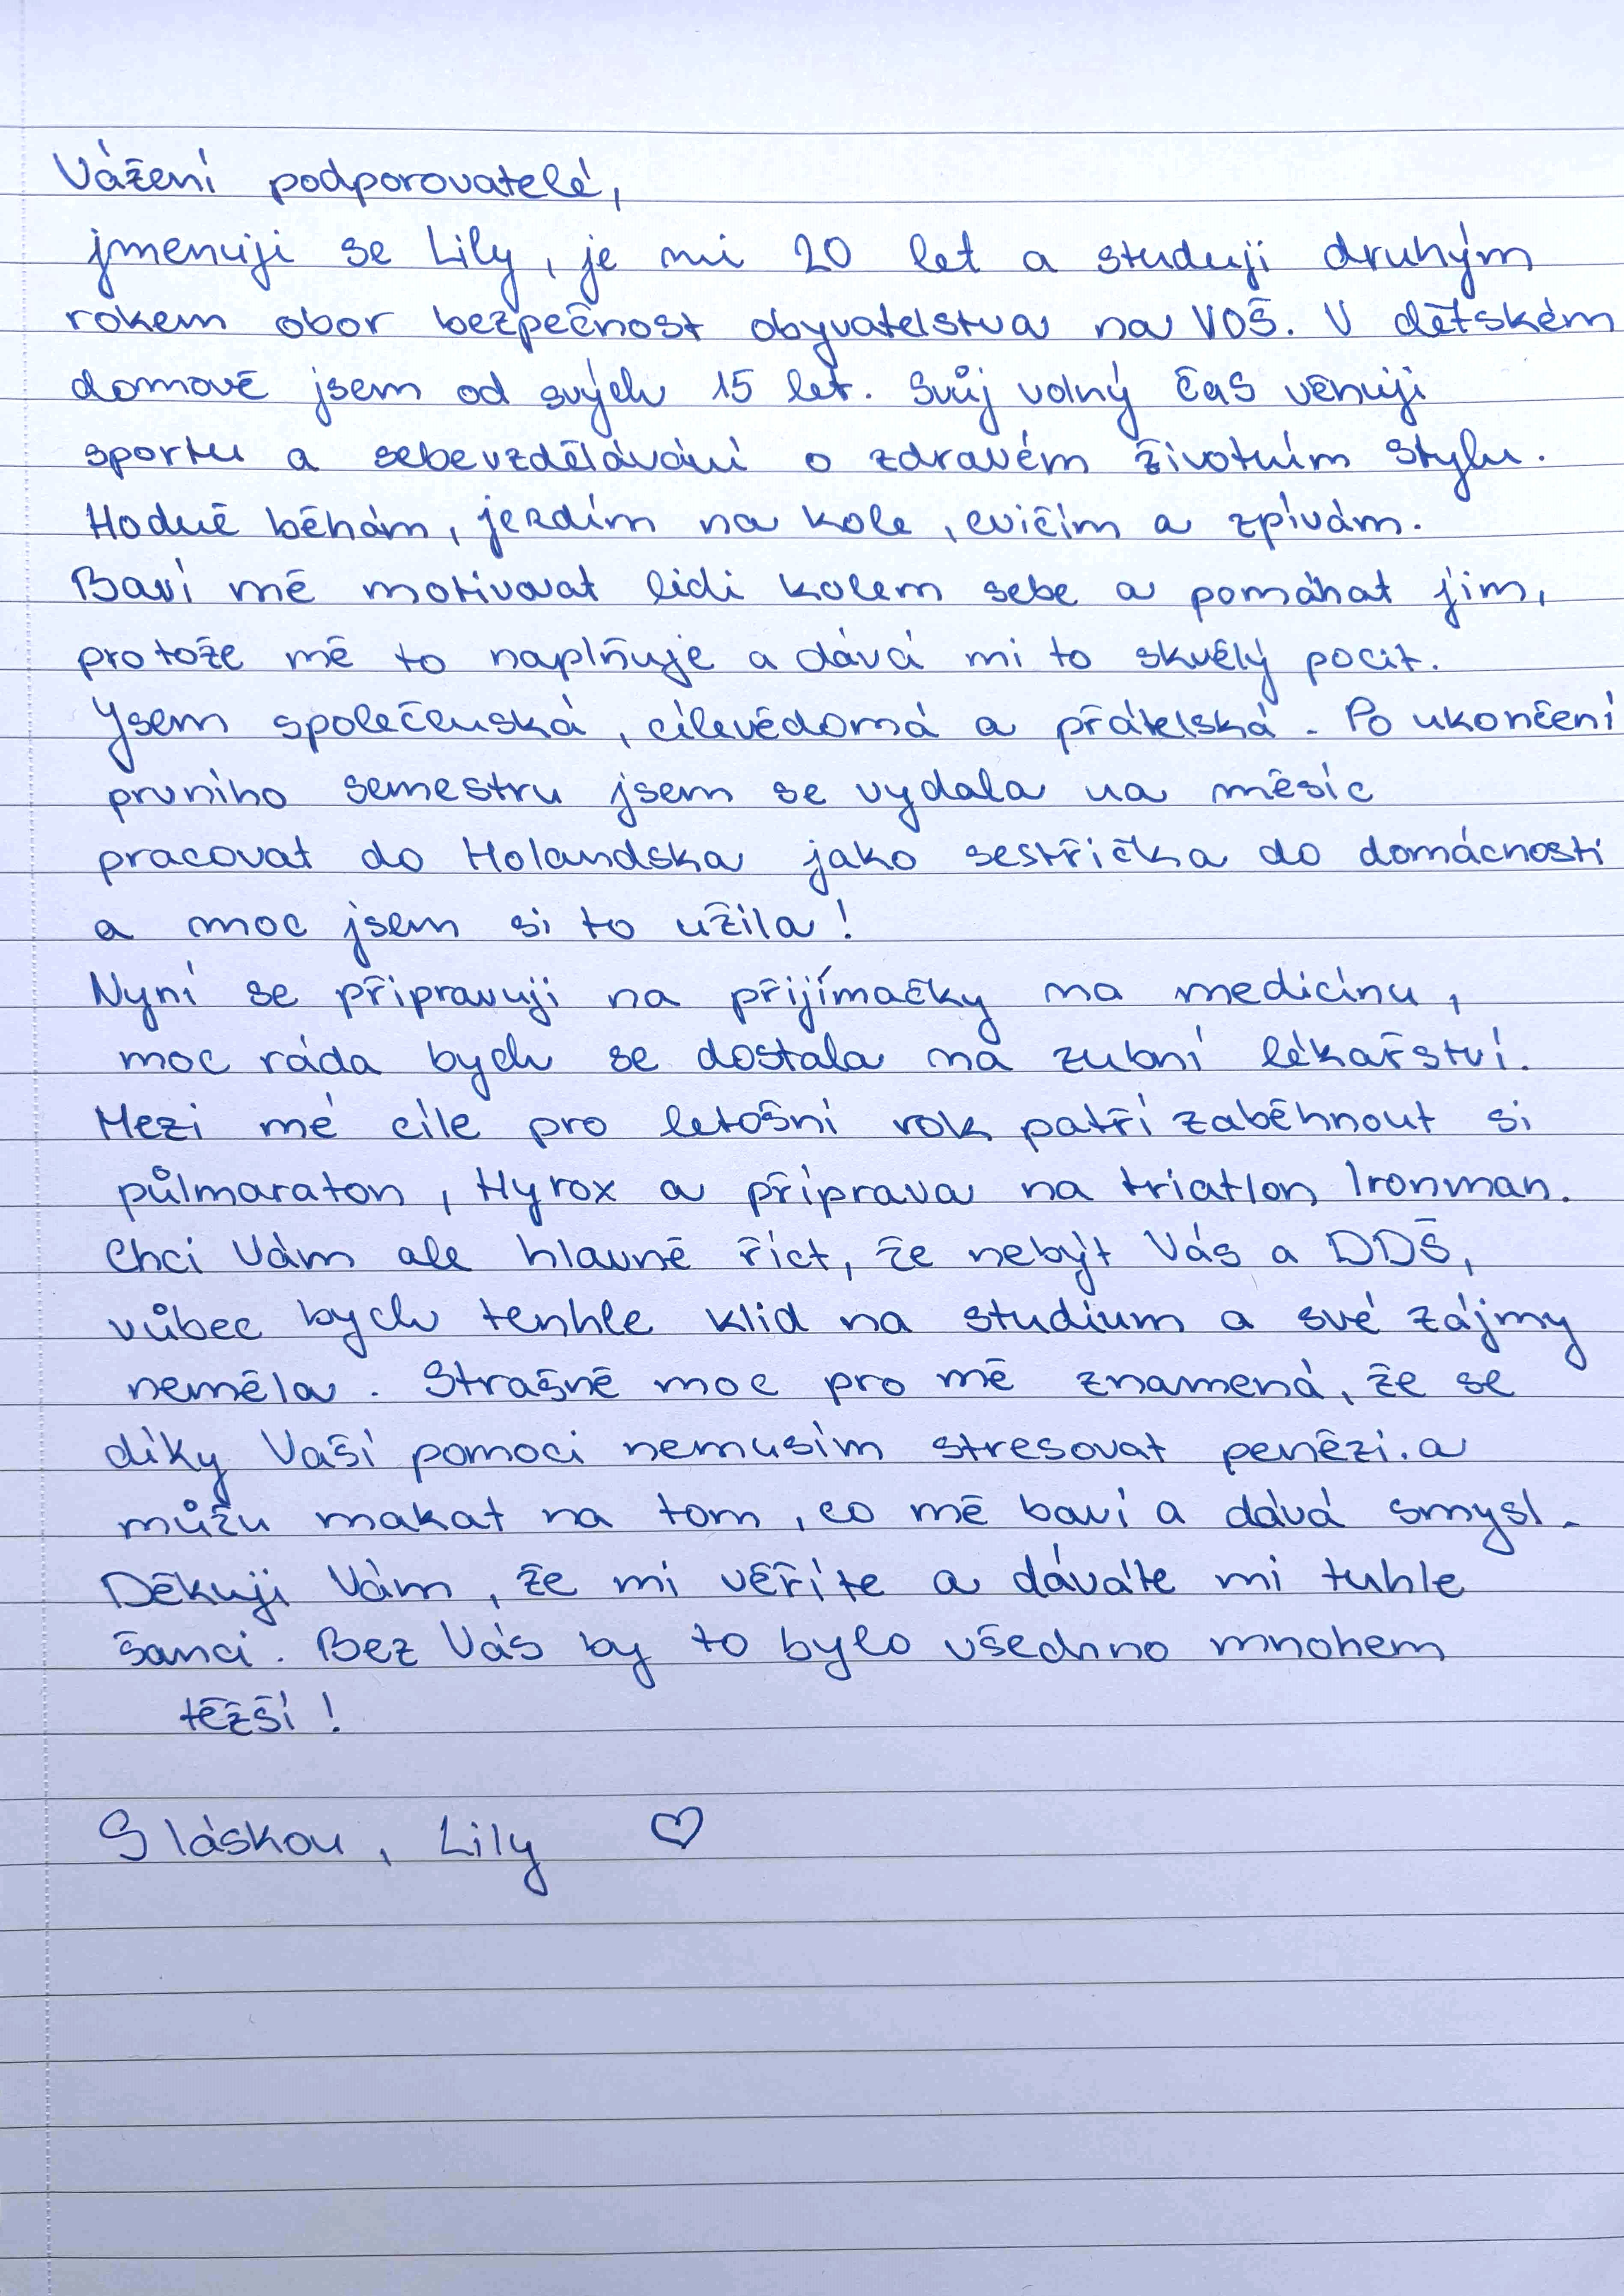 Vážení podporovatelé,
jmenuji se Lily, je mi 20 let a studuji druhým
rokem obor bezpečnost obyvatelstva na VOŠ. V dětském
domově jsem od svých 15 let. Svůj volný čas věnuji
sportu a sebevzdělávání o zdravém životním stylu.
Hodně běhám, jezdím na kole, cvičím a zpívám.
Baví mě motivovat lidi kolem sebe a pomáhat jim,
protože mě to naplňuje a dává mi to skvělý pocit.
Jsem společenská, cílevědomá a přátelská. Po ukončení
prvního semestru jsem se vydala na měsíc
pracovat do Holandska jako sestřička do domácnosti
a moc jsem si to užila!
Nyní se připravuji na přijímačky na medicínu,
moc ráda bych se dostala na zubní lékařství.
Mezi mé cíle pro letošní rok patří zaběhnout si
půlmaraton, Hyrox a příprava na triatlon Ironman.
Chci Vám ale hlavně říct, že nebýt Vás a DDŠ,
vůbec bych tenhle klid na studium a své zájmy
neměla. Strašně moc pro mě znamená, že se
díky Vaší pomoci nemusím stresovat penězi.a
můžu makat na tom, co mě baví a dává smysl.
Děkuji Vám, že mi věříte a dáváte mi tuhle
šanci. Bez Vás by to bylo všechno mnohem
těžší!
S láskou, Lily ♡